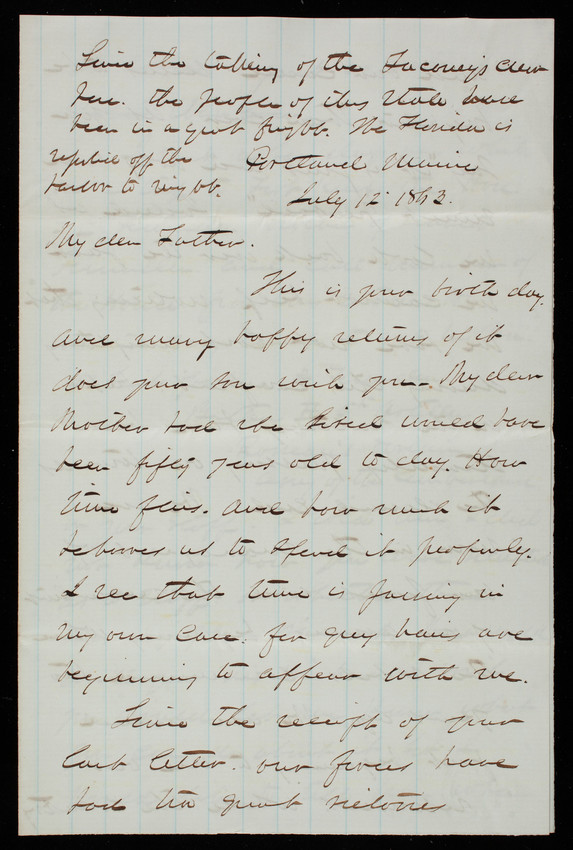 Since the taking of the Tacony's crew
here. the people of this State have
been in a great fright. The Florida is
reported off the
harbor to night.
Portland Maine
July 12 1863.
My dear Father.
This is your birth day.
and many happy returns of it
does your son wish you. My dear
Mother had she lived would have
been fifty years old to day. How
time flies. and how much it
behooves us to spend it properly.
I see that time is passing in
my own case. for grey hairs are
beginning to appear with me.
Since the receipt of your
last letter. our forces have
had two great victories